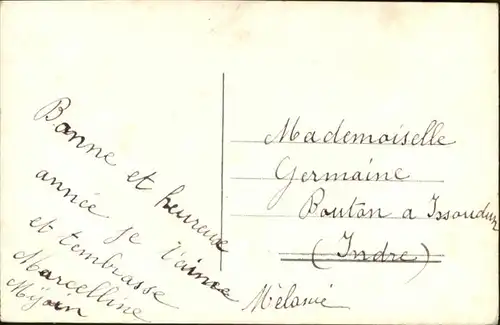 Bonne et heureuse
année je t'aime
et t'embrasse
Marcelline
Mélanie
Mademoiselle
Germaine
Bouton a Issoudun
(Indre)